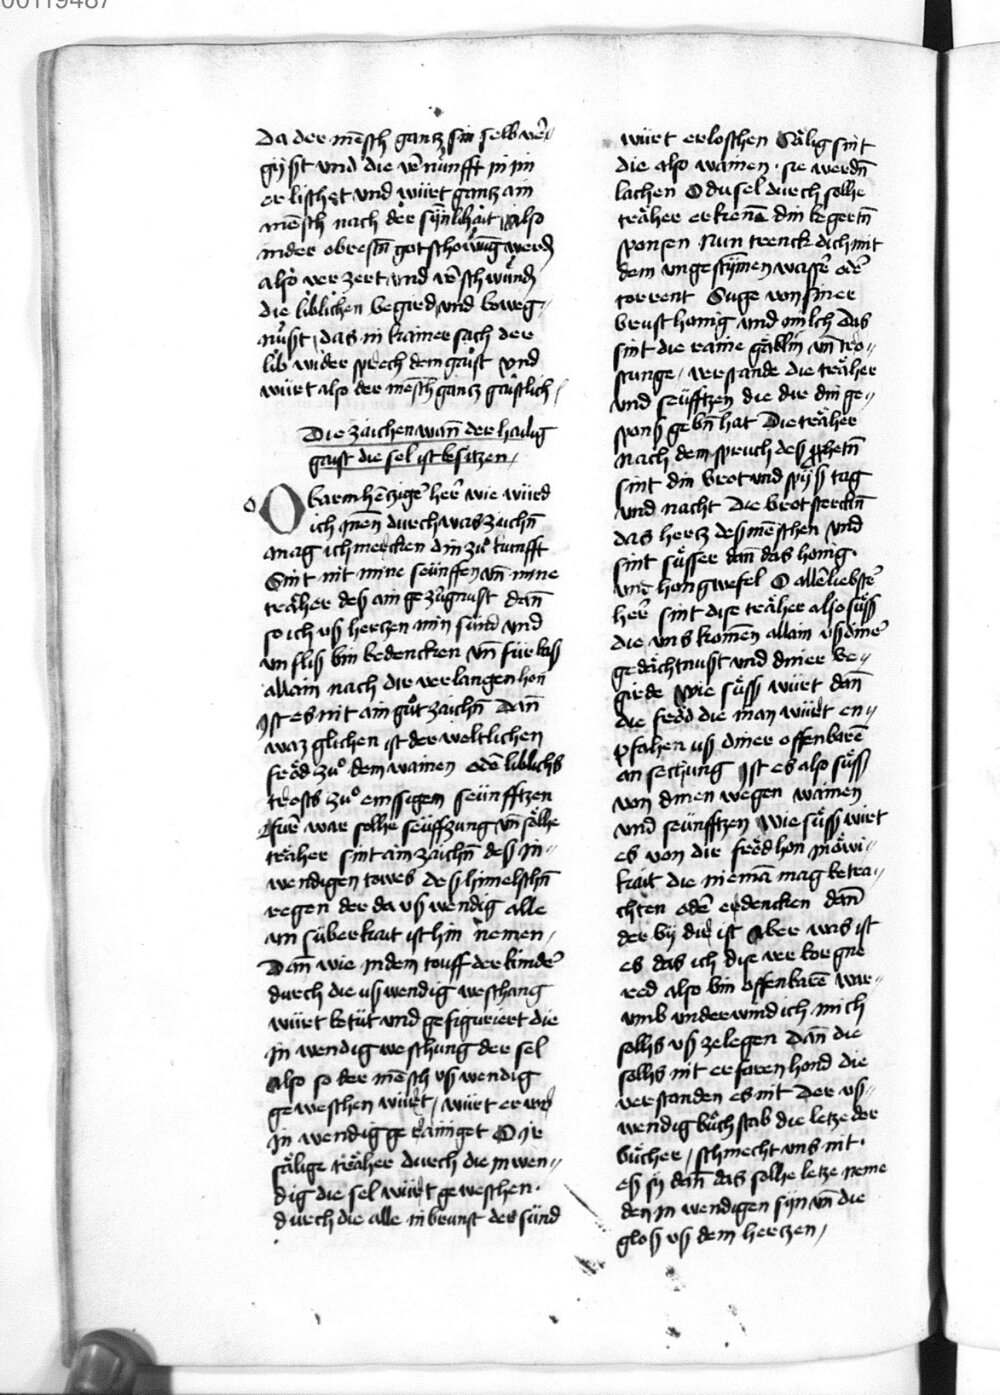 00119487
Da der mēsch gantz sin selb ver-
gijst vnd die v̄nunfft in im
erlischet vnd würt gantz ain
mēnsch nach der sÿnlihait Also
in der obresten gotschowūg werdē
also verzert vnd v̄schwunde
die liblichen begird vnd beweg-
nust, das in kainer sach der
lib wider sprech dem gaist vnd
würt also der mēsch gantz gaistlich /
Die zaichen wan̄ der hailig
gaist die sel ist besitzen,
O barmhertziḡ her̄ wie würd
ich jnnen durch was zaichn̄
mag ich mercken din zuͦkunfft
Sint nit mine seünffen vn̄ mine
träher des ain gezügnust dan̄
so ich vß hertzen min sünd vnd
vnfliß bin bedencken vn̄ fürbas
allain nach dir verlangen hon
Ist es nit ain guͦt zaichn̄ Dan̄
waz glichen ist der weltlichen
fröd zuͦ dem wainen oder liblichs
trosts zuͦ emssigem seünfftzen
Für war solhe seüffzung vn̄ sölhe
träher sint ain zaichn̄ deß In-
wendigen towes des himelschn̄
regen der da vß wendig alle
vnsüberkait ist hin nemen,
Dan̄ wie in dem touff der kinder
durch die vßwendig weschang
würt betüt vnd gefiguriert die
in wendig weschung der sel
Also so der mēsch vß wendig
geweschen würt, würt er vor
in wendig gerainiget O ir
sälige träher durch die inwen-
dig die sel würt geweschen.
durch die alle inbrunst der sünd
würt erloschen Sälig sint
die also wainen. sie werdn̄
lachen O du sel durch solhe
träher erkenn din begertn̄
sponsen Nun trenck dich mit
dem vngestÿmen wasser oder
torrent Suge von siner
brust honig vnd milch das
sint die raine gäblin vn̄ trö-
stunge, verstande die träher
vnd seüfftzen die dir din ge-
spons gebn̄ hat Die träher
nach dem spruch deß prophetn̄
sint din brot vnd spÿß tag
vnd nacht Die brot sterckn̄
das hertz deß menschen vnd
sint süsser dan̄ das honig
vnd hongwesel O allerliebster
her̄ sint dise träher also süß
die vns komen allain vß diner
gedächtnust vnd diner be-
girde Wie süß würt dan̄
die fröd die man würt en-
pfahen vß diner offenbaren
ansechung Ist es also süß
von dinen wegen wainen
vnd seünfftzen wie süß wirt
es von dir fröd hon in öwi-
kait die nieman mag betra-
chten oder erdencken dan̄
der bÿ dir ist Aber was ist
es das ich dise verborgne
red also bin offenbaren war-
vmb vnderwind ich mich
sollhs vß zelegen Dan̄ die
sollhs nit erfaren hond die
verstanden es nit Der vß-
wendig buͦchstab die letze der
bücher, schmecht vns nit.
eß sÿ dan̄ das sollhe letze neme
den in wendigen sÿn vn̄ die
gloß vß dem hertzen,